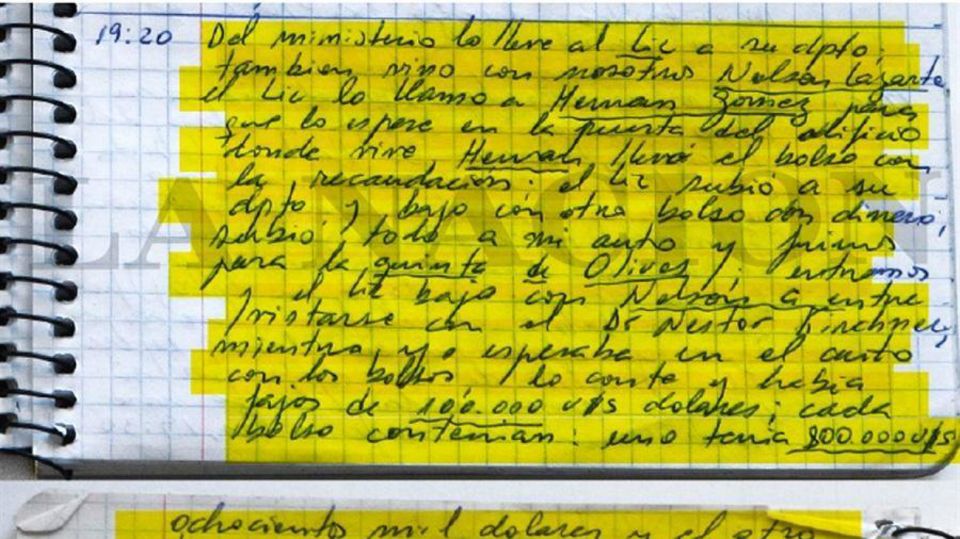 19:20 Del ministerio lo lleve al Lic a su dpto;
tambien vino con nosotros Nelson Lazarte
el Lic lo llamo a Hernan Gomez para
que lo espere en la puerta del edificio
donde vive Hernan llevó el bolso con
la recaudación: el Lic subió a su
dpto y bajo con otro bolso con dinero;
subió todo a mi auto y fuimos
para la quinta de Olivos; entramos
y el Lic bajo con Nelson a entre
vistarse con el Dr Nestor Kirchner,
mientras yo esperaba en el auto
con los bolsos, lo conte y habia
fajos de 100.000 U$S dolares; cada
bolso contenian: uno tenía 800.000 U$S
ochocientos mil dolares y el otro
LA NACION